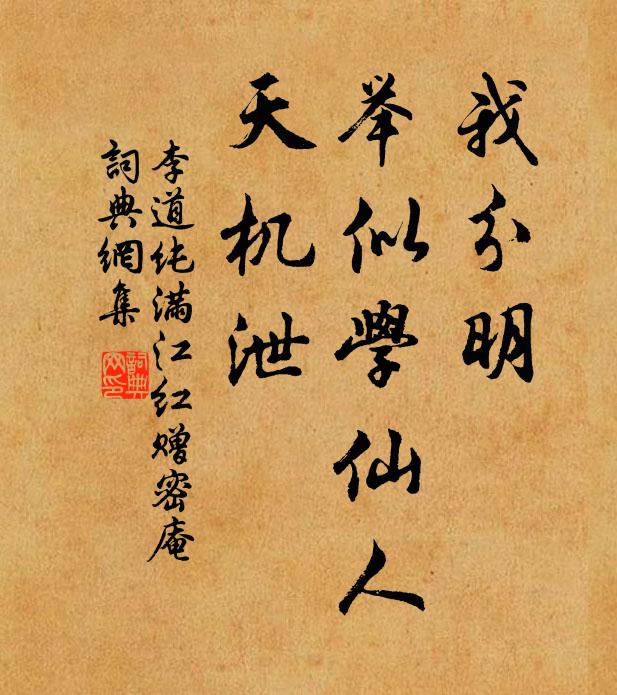 我分明
举似學仙人
天机泄
李道纯满江红赠密庵
詞典網集
詞典網印